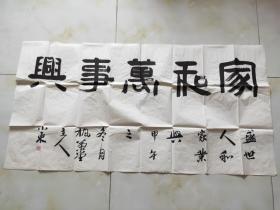 家和萬事興
盛世
人和
家業
興
甲午
之
冬月
主人